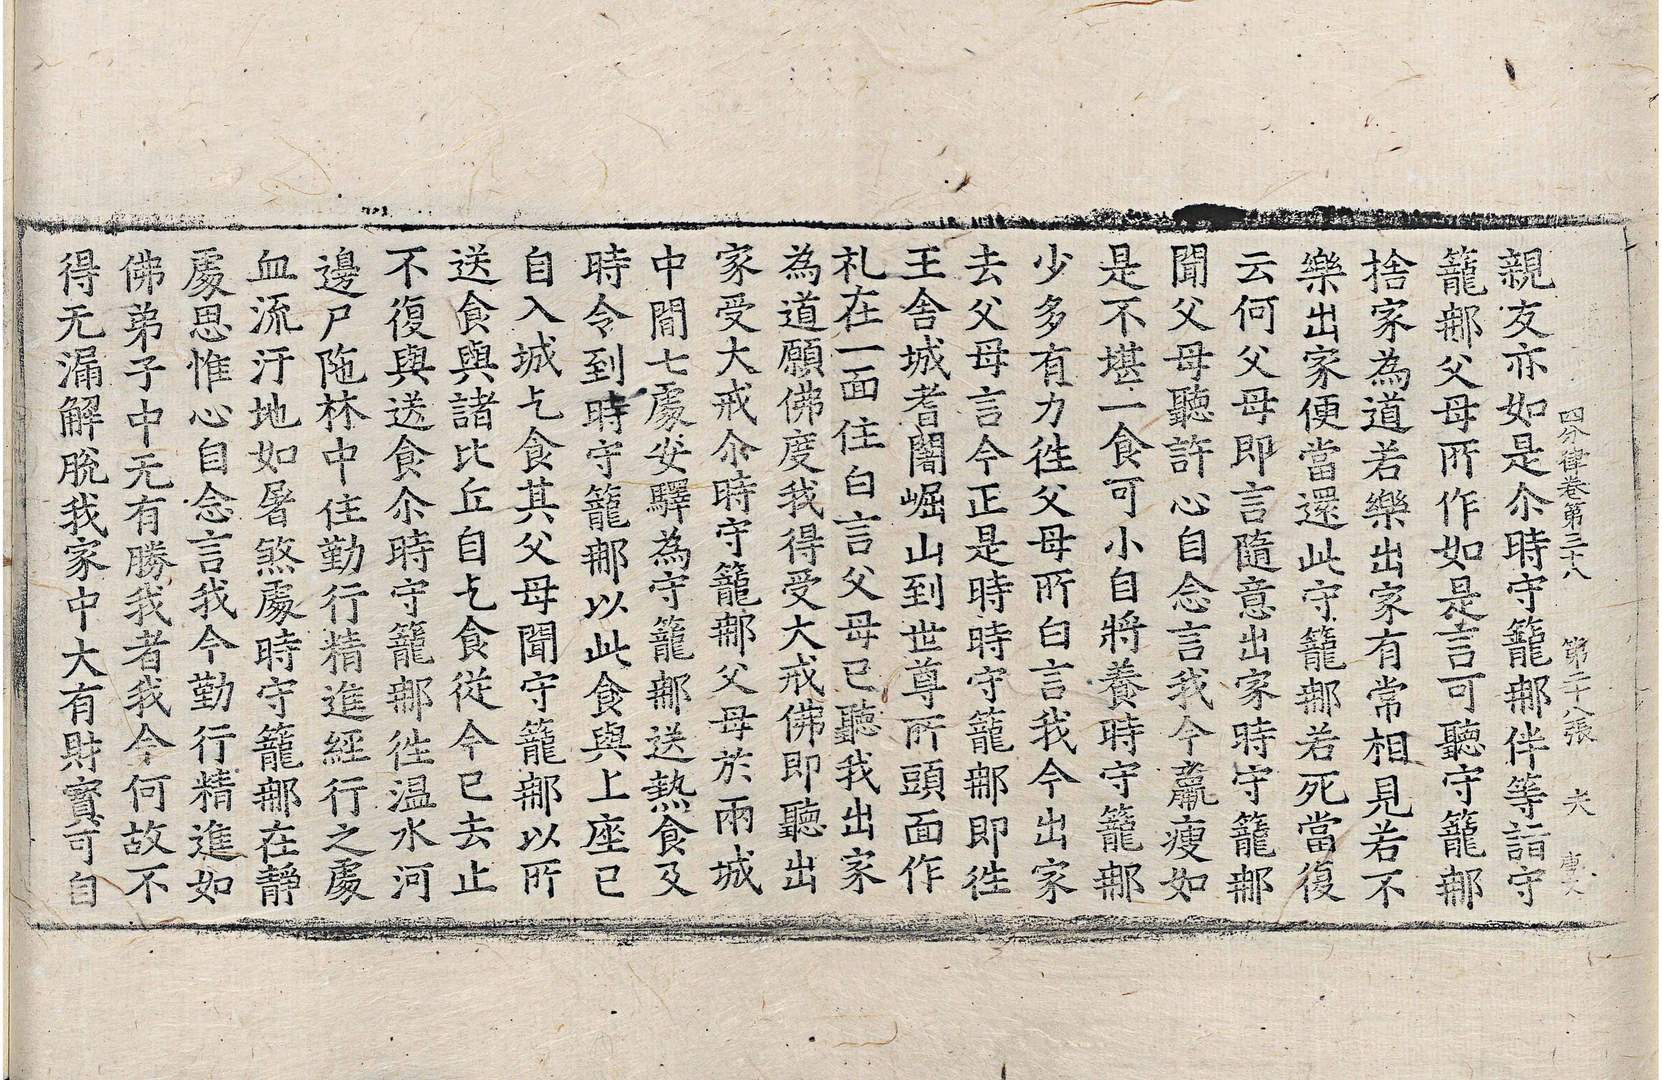 四分律卷第三十八 第二十八張 夾
親友亦如是尒時守籠那伴等詣守
籠那父母所作如是言可聽守籠那
捨家為道若樂出家有常相見若不
樂出家便當還此守籠那若死當復
云何父母即言隨意出家時守籠那
聞父母聽許心自念言我今羸瘦如
是不堪一食可小自將養時守籠那
少多有力徃父母所白言我今出家
去父母言今正是時時守籠那即徃
王舍城耆闍崛山到世尊所頭面作
礼在一面住白言父母已聽我出家
為道願佛度我得受大戒佛即聽出
家受大戒尒時守籠那父母於兩城
中間七處安驛為守籠那送熱食及
時令到時守籠那以此食與上座已
自入城乞食其父母聞守籠那以所
送食與諸比丘自乞食從今已去止
不復與送食尒時守籠那徃温水河
邊尸陁林中住勤行精進經行之處
血流汙地如屠煞處時守籠那在靜
處思惟心自念言我今勤行精進如
佛弟子中无有勝我者我今何故不
得无漏解脫我家中大有財寶可自